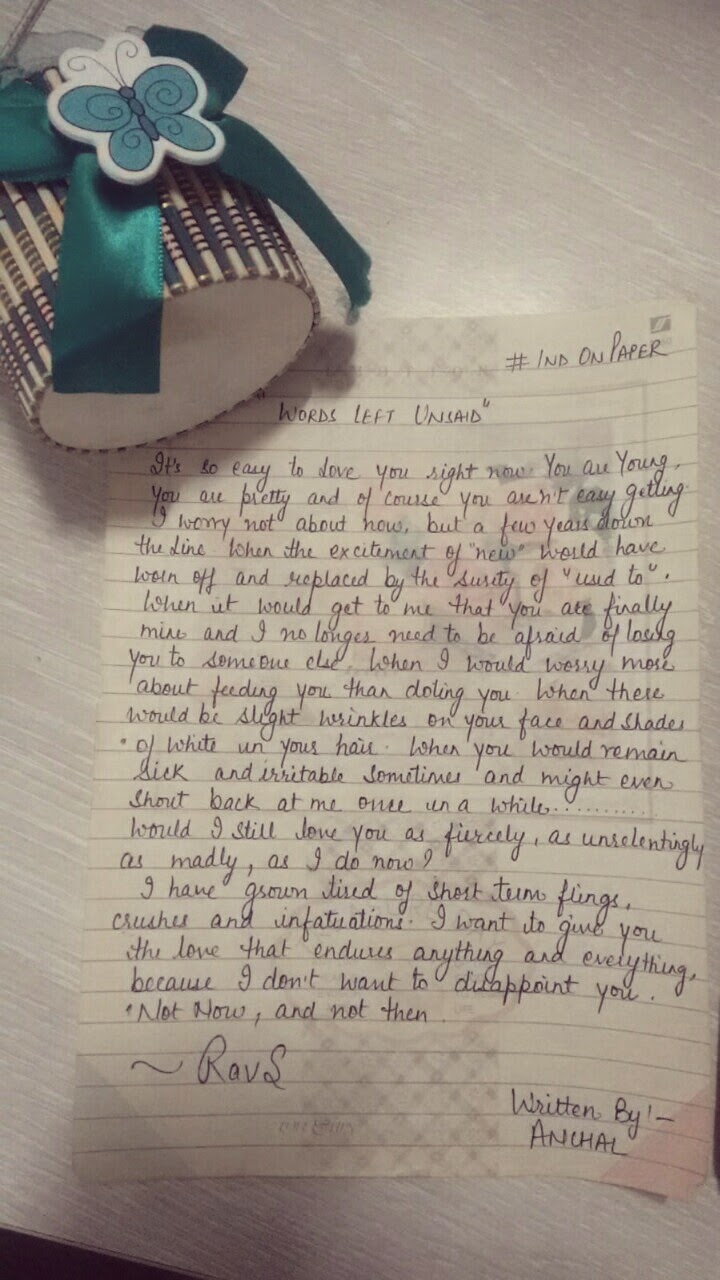 # IND ON PAPER
"WORDS LEFT UNSAID"
It's so easy to love you right now. You are Young.
You are pretty and of course you aren't easy getting.
I worry not about now, but a few years down
the line when the excitement of "new" would have
worn off and replaced by the surity of "used to".
When it would get to me that you are finally
mine and I no longer need to be afraid of losing
you to someone else. When I would worry more
about feeding you than doting you. When there
would be slight wrinkles on your face and shades
of white in your hair. When you would remain
sick and irritable sometimes and might even
shout back at me once in a while..........
Would I still love you as fiercely, as unrelentingly
as madly, as I do now?
I have grown tired of short term flings,
crushes and infatuations. I want to give you
the love that endures anything and everything,
because I don't want to disappoint you.
Not Now, and not then
~ RavS
Written By:-
ANCHAL